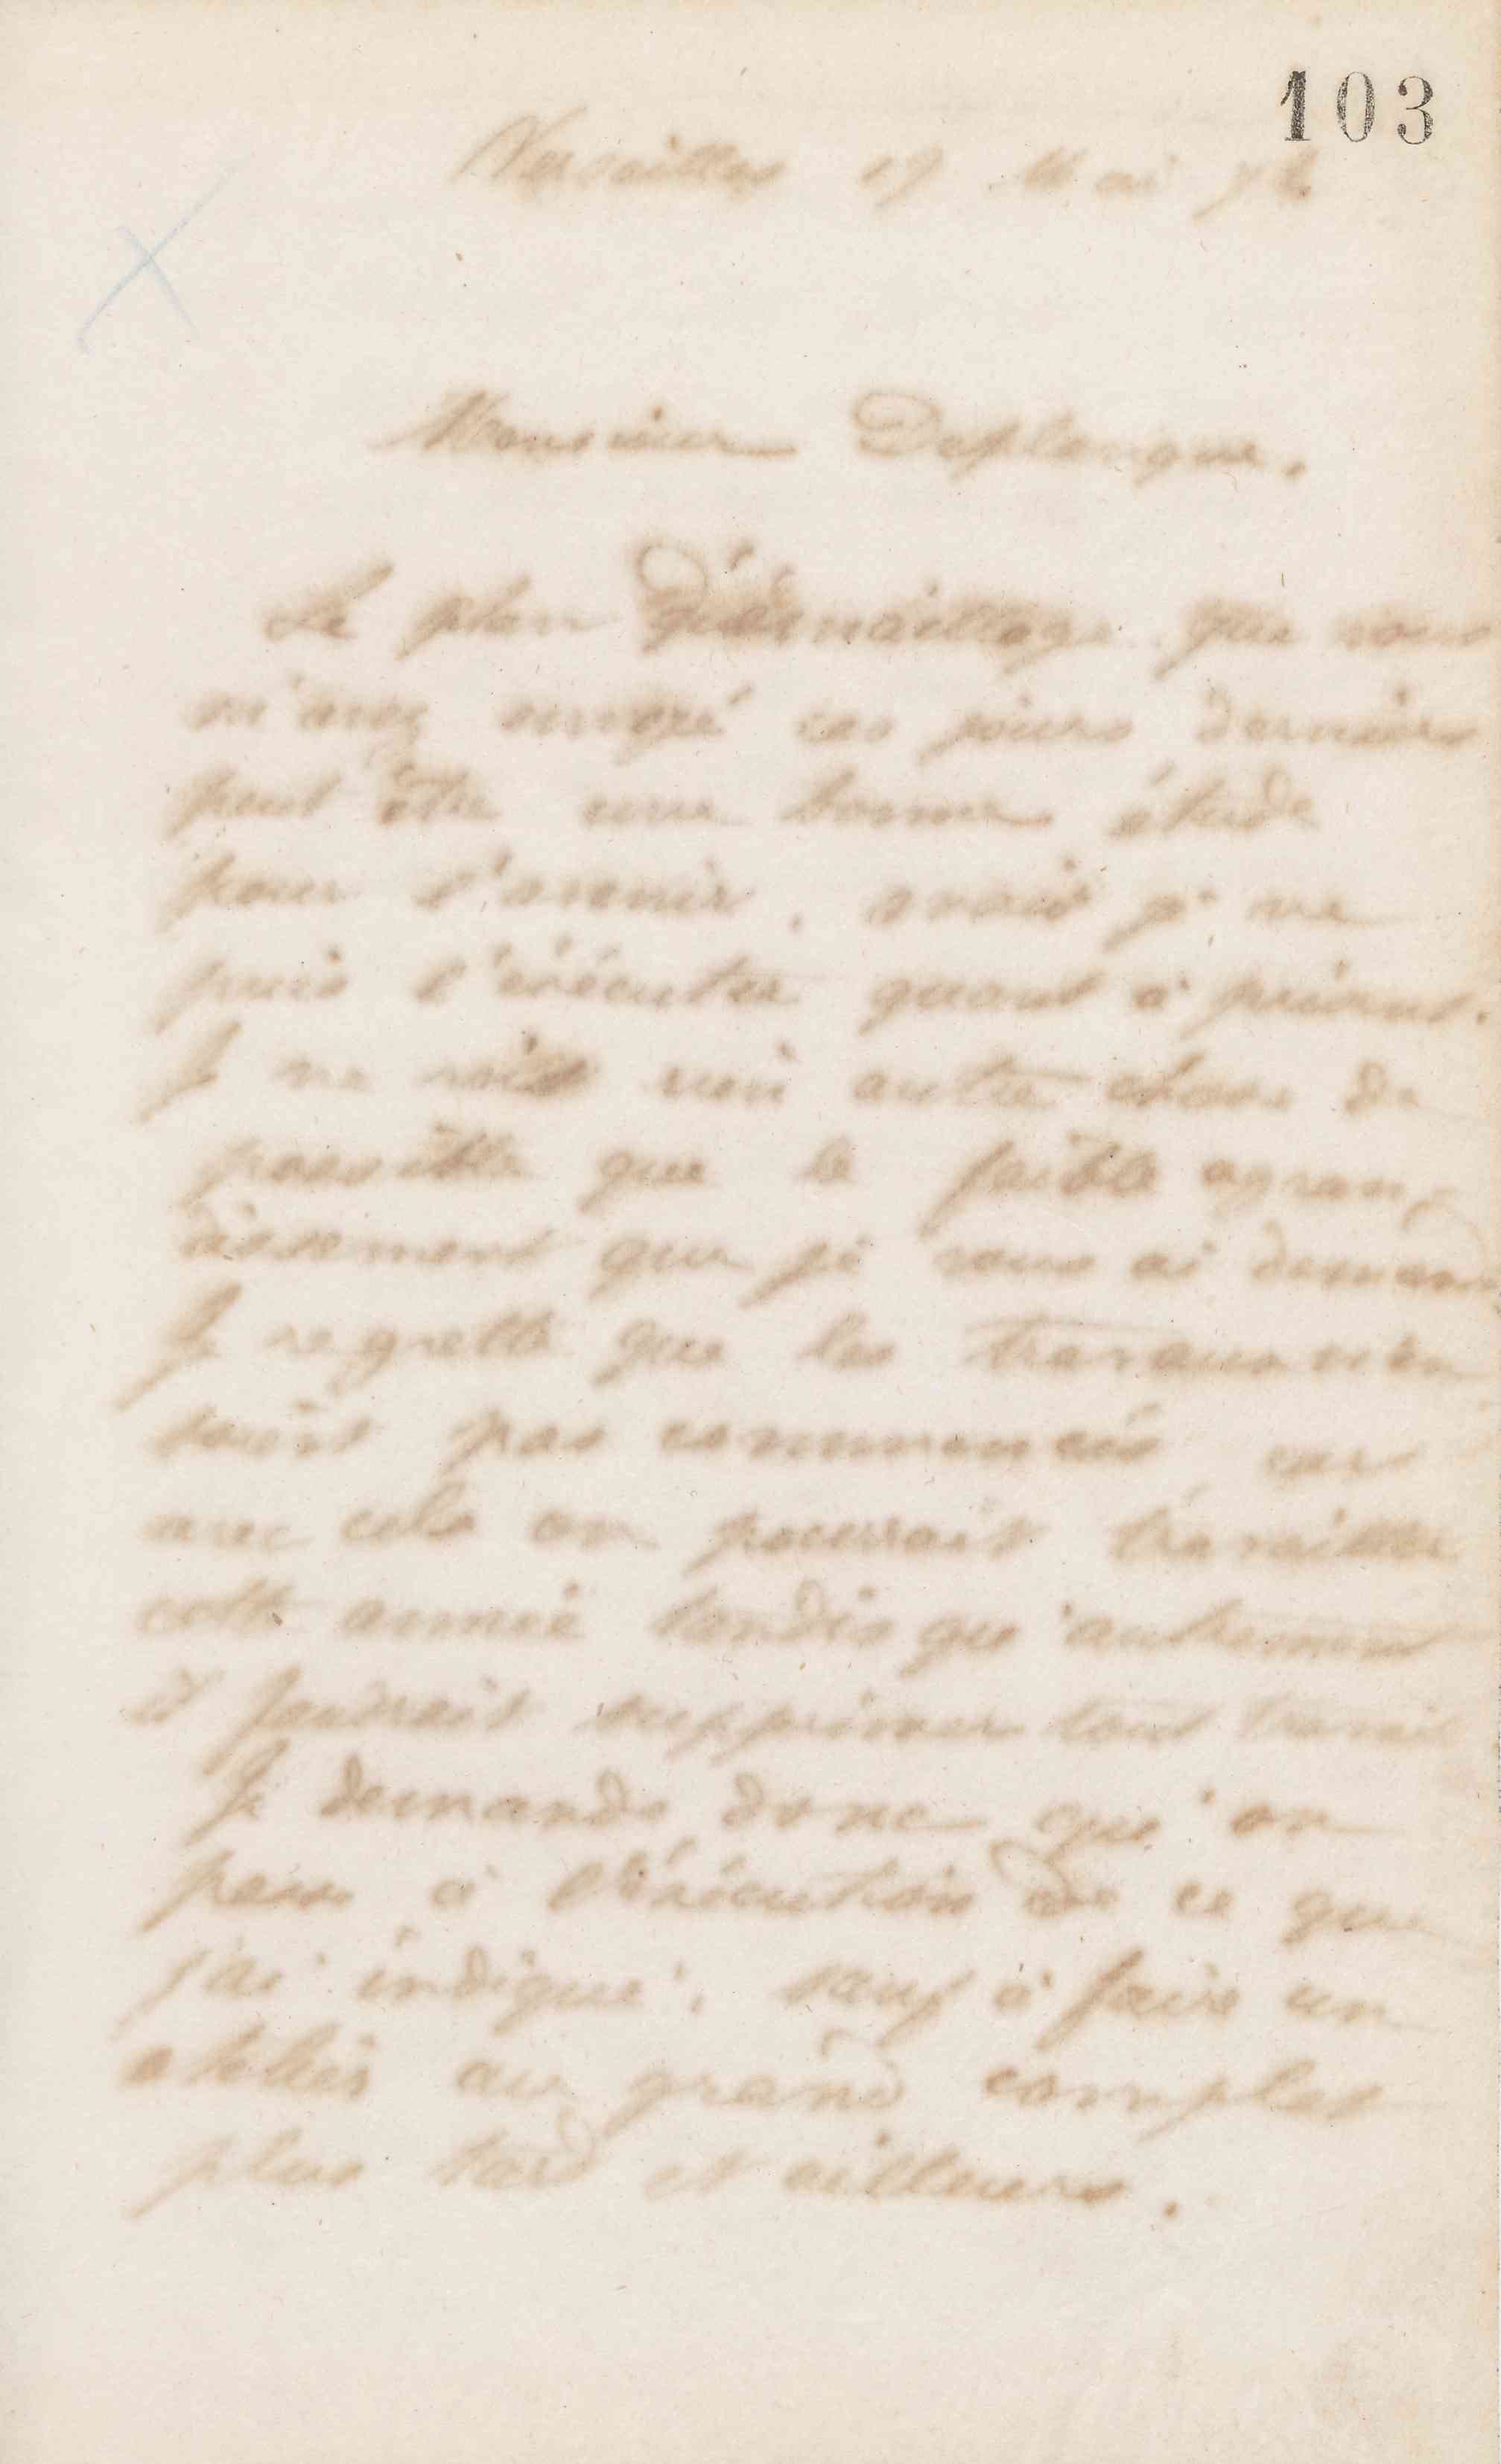 103
Versailles 19 Mai 74
Monsieur Deplanque.
Le plan d'émaillage que vous
m'avez envoyé ces jours derniers
peut être une bonne étude
pour l'avenir, mais je ne
puis l'exécuter quant à présent.
Je ne vois rien autre chose de
possible que le faible agran-
dissement que je vous ai demandé
Je regrette que les travaux n'en
soient pas commencés car
avec cela on pourrait travailler
cette année tandis qu'autrement
il faudrait supprimer tout travail
Je demande donc qu'on
passe à l'exécution de ce que
j'ai indiqué, sauf à faire un
atelier au grand complet
plus tard et ailleurs.